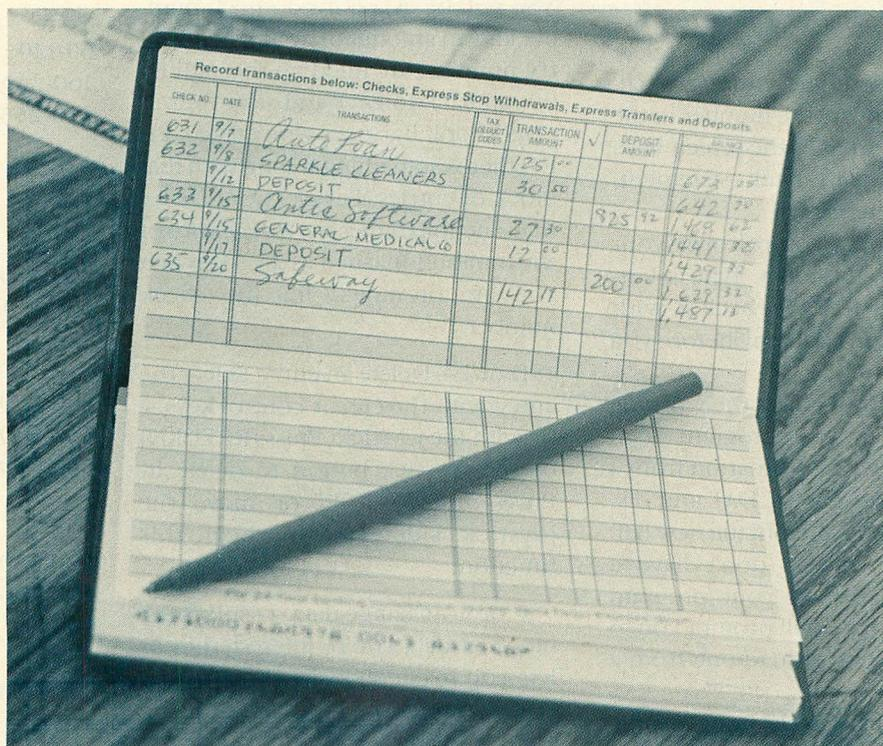 Record transactions below: Checks, Express Stop Withdrawals, Express Transfers and Deposits
CHECK NO. DATE TRANSACTIONS TAX DEDUCT CODES TRANSACTION AMOUNT √ DEPOSIT AMOUNT BALANCE
631 9/7 Auto Loan 125 00 673 20
632 9/8 SPARKLE CLEANERS 30 50 642 70
9/12 DEPOSIT 825 92 1,468 62
633 9/15 Antic Software 27 30 1441 32
634 9/15 GENERAL MEDICAL CO 12 00 1429 32
9/17 DEPOSIT 200 00 1,629 32
635 9/20 Safeway 142 19 1,487 13